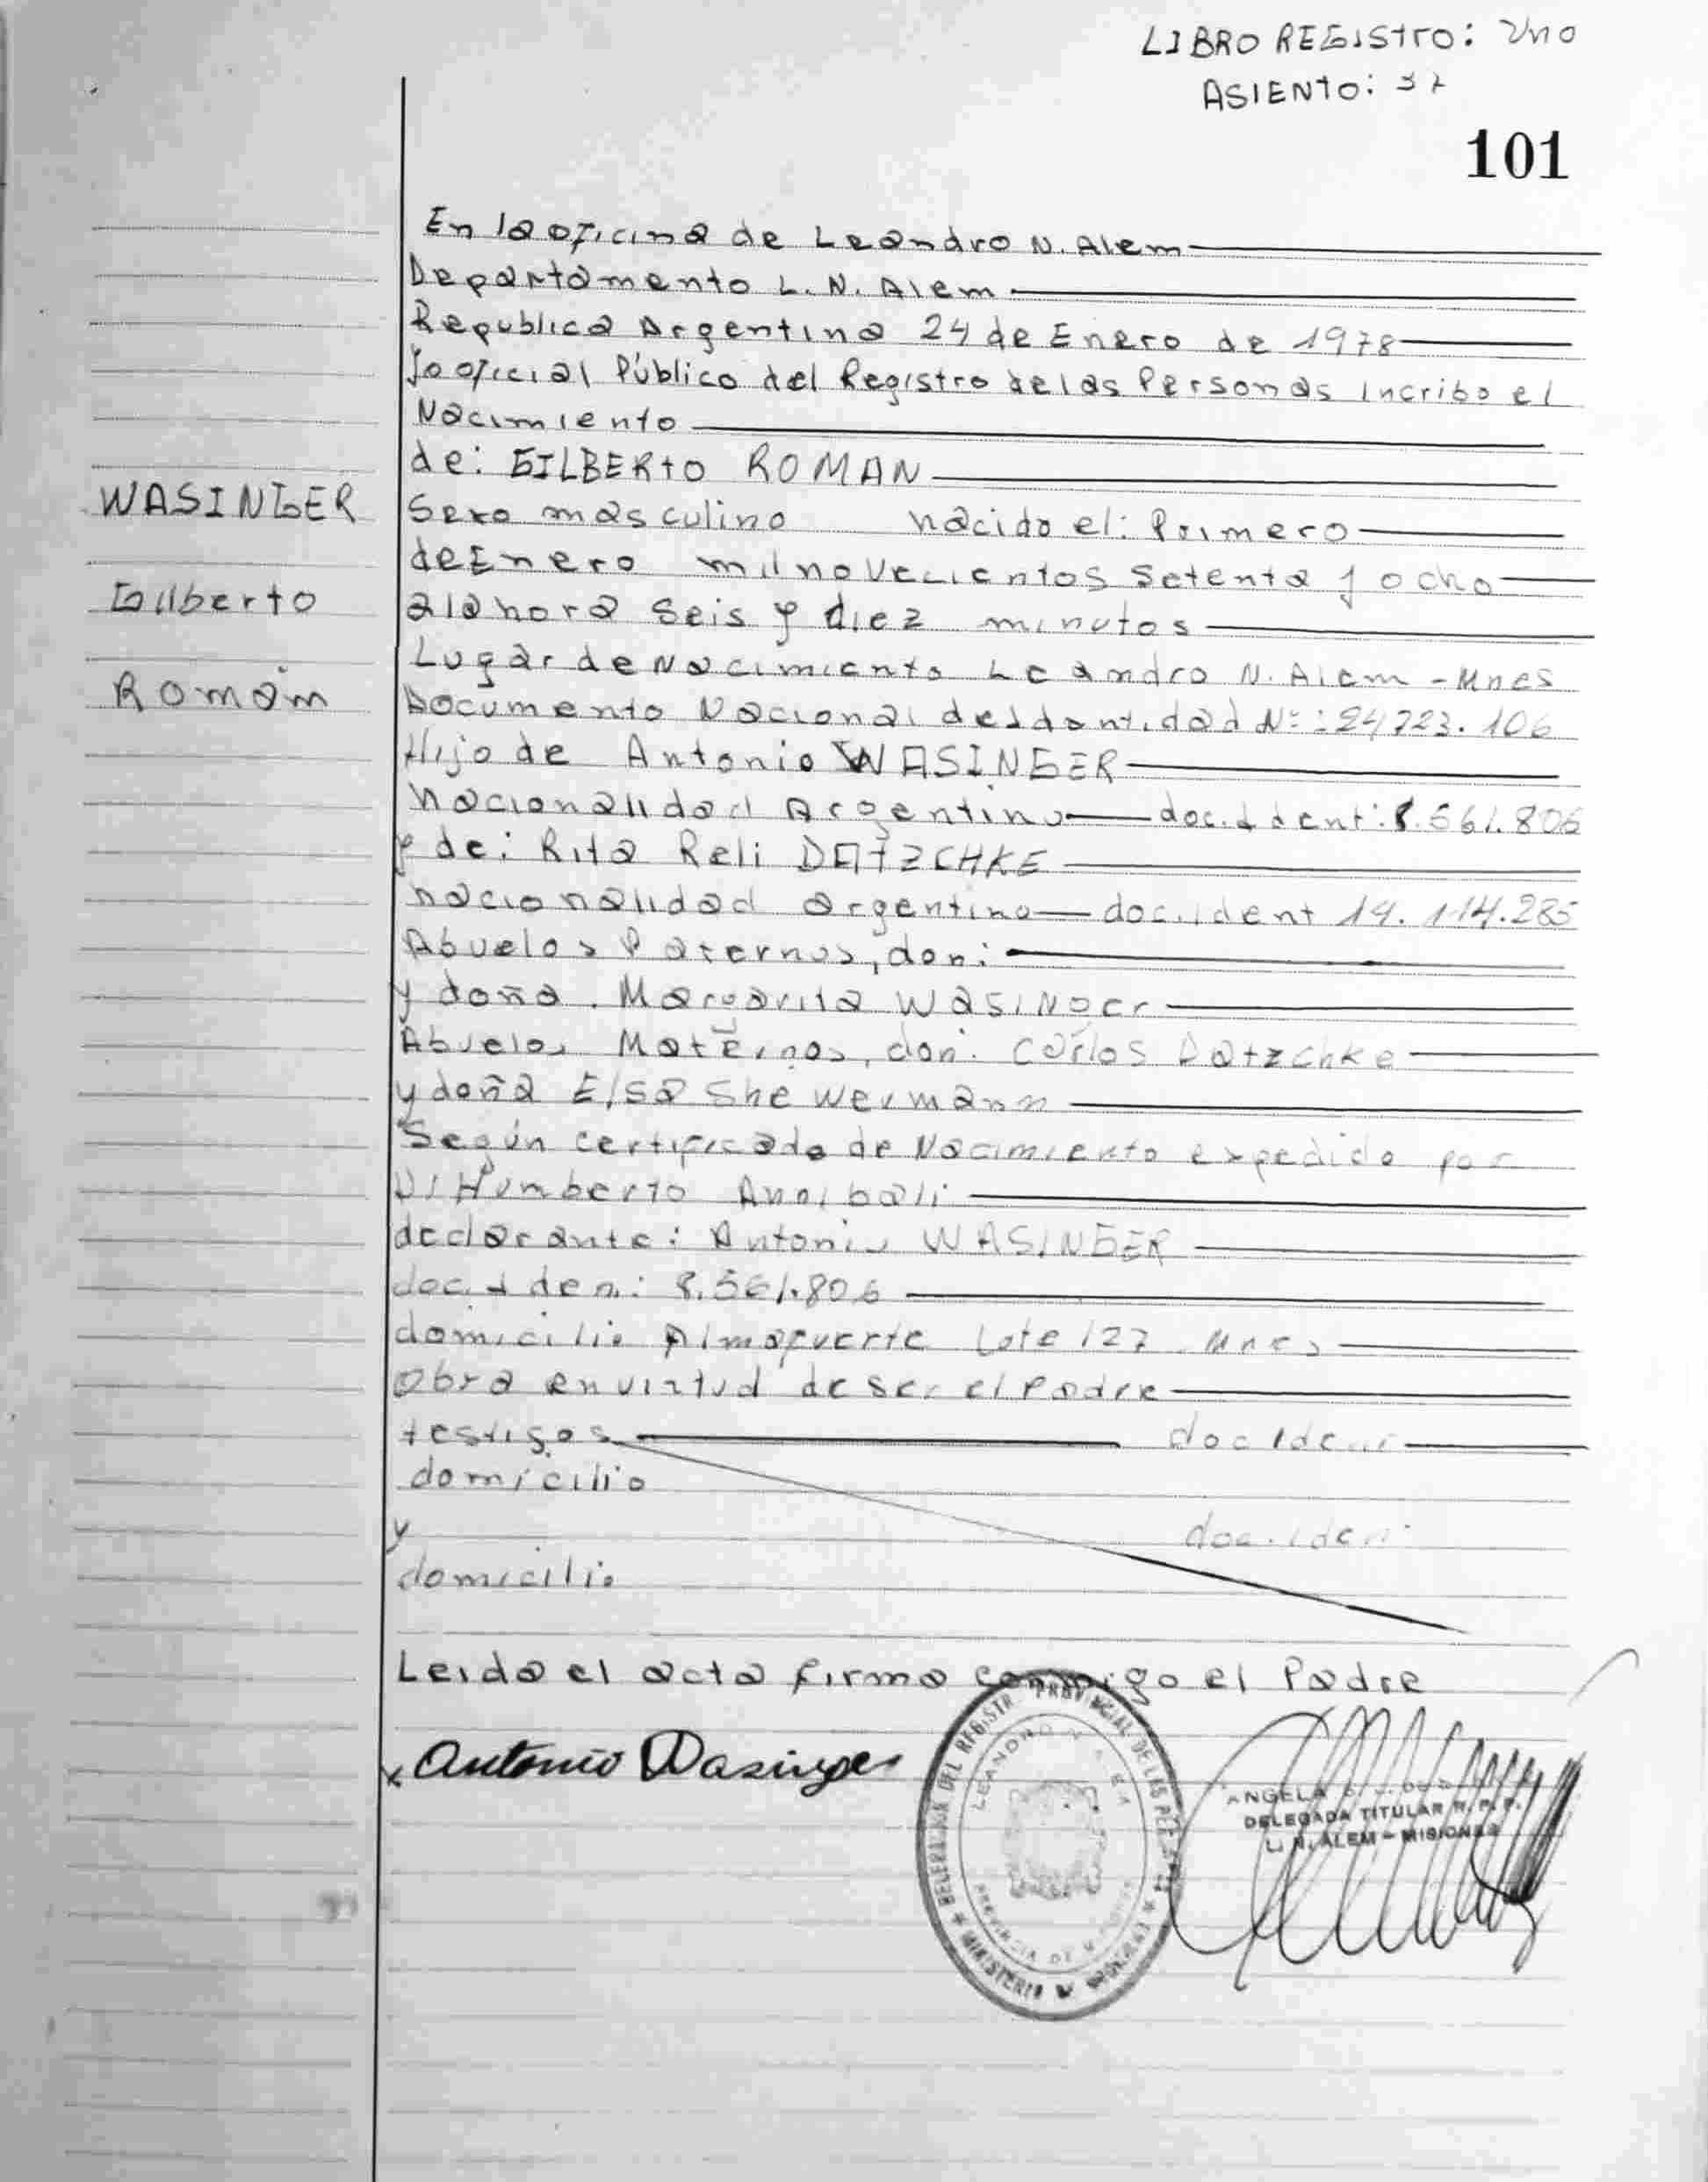 LIBRO REGIStRO: Uno
ASIENtO: 37
101
En la oficina de Leandro N. Alem
Departamento L. N. Alem
Republica Argentina 24 de Enero de 1978
Yo oficial Público del Registro de las Personas Incribo el
Nacimiento
de: GILBERtO ROMAN
WASINGER
Sexo masculino nacido el: Primero
de Enero mil novecientos setenta y ocho
Gilberto
a la hora seis y diez minutos
Lugar de Nacimiento Leandro N. Alem - Mnes
Román
Documento Nacional de Identidad Nº: 24723.106
Hijo de Antonio WASINGER
nacionalidad Argentino doc. Ident: 8.561.806
y de: Rita Reli DAtZCHKE
nacionalidad argentina doc. ident 14.114.285
Abuelos Paternos, don:
y doña. Margarita Wasinger
Abuelos Maternos, don: Carlos Datzchke
y doña Elsa Shewermann
Según certificado de Nacimiento expedido por
Dr Humberto Annibali
declarante: Antonio WASINGER
doc. Iden.: 8.561.806
domicilio Almafuerte Lote 127. Mnes
Obra en virtud de ser el Padre
testigos doc Iden:
domicilio
y doc. iden:
domicilio
Leida el acta firma conmigo el Padre
Antonio Wasinger
DELEGACION DEL REGISTR. PROVINCIAL DE LAS
MINISTERIO
LEANDRO N.
PROVINCIA DE
ANGELA
DELEGADA TITULAR R. P. P.
L. N. ALEM - MISIONES